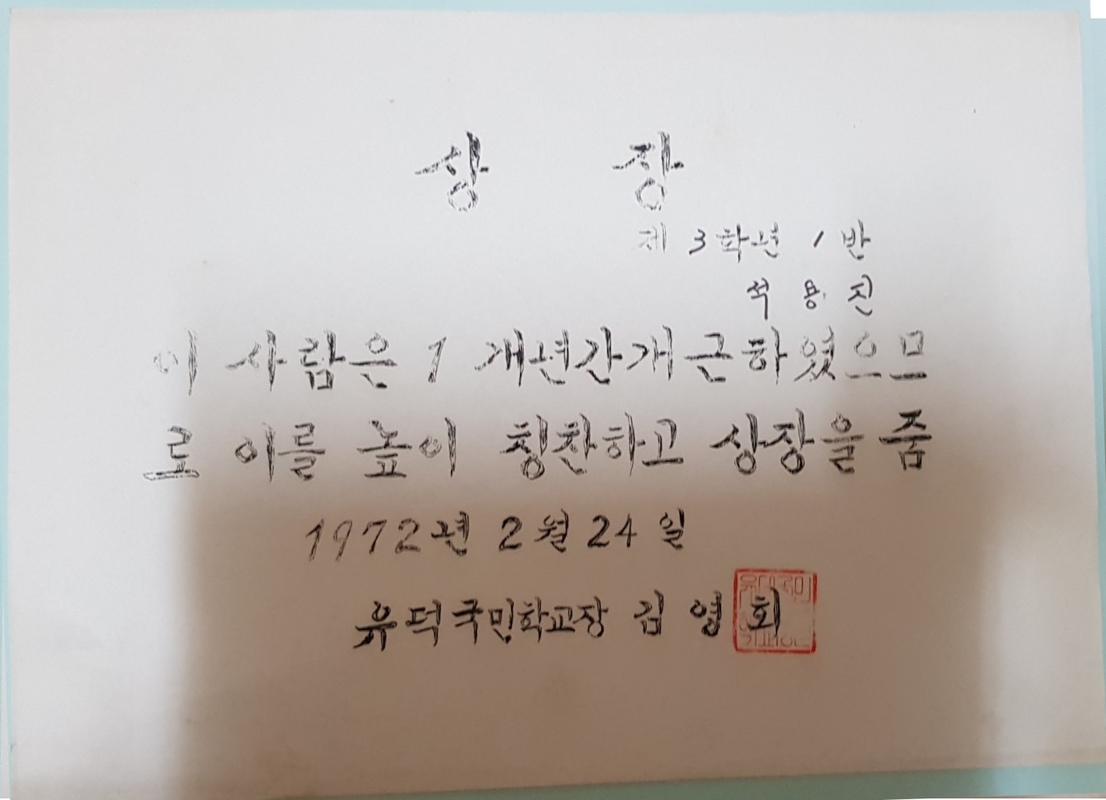 상 장
제 3학년 1 반
석 용 진
이 사람은 1 개년간개근하였으므
로 이를 높이 칭찬하고 상장을 줌
1972년 2월 24일
유덕국민학교장 김 영 회